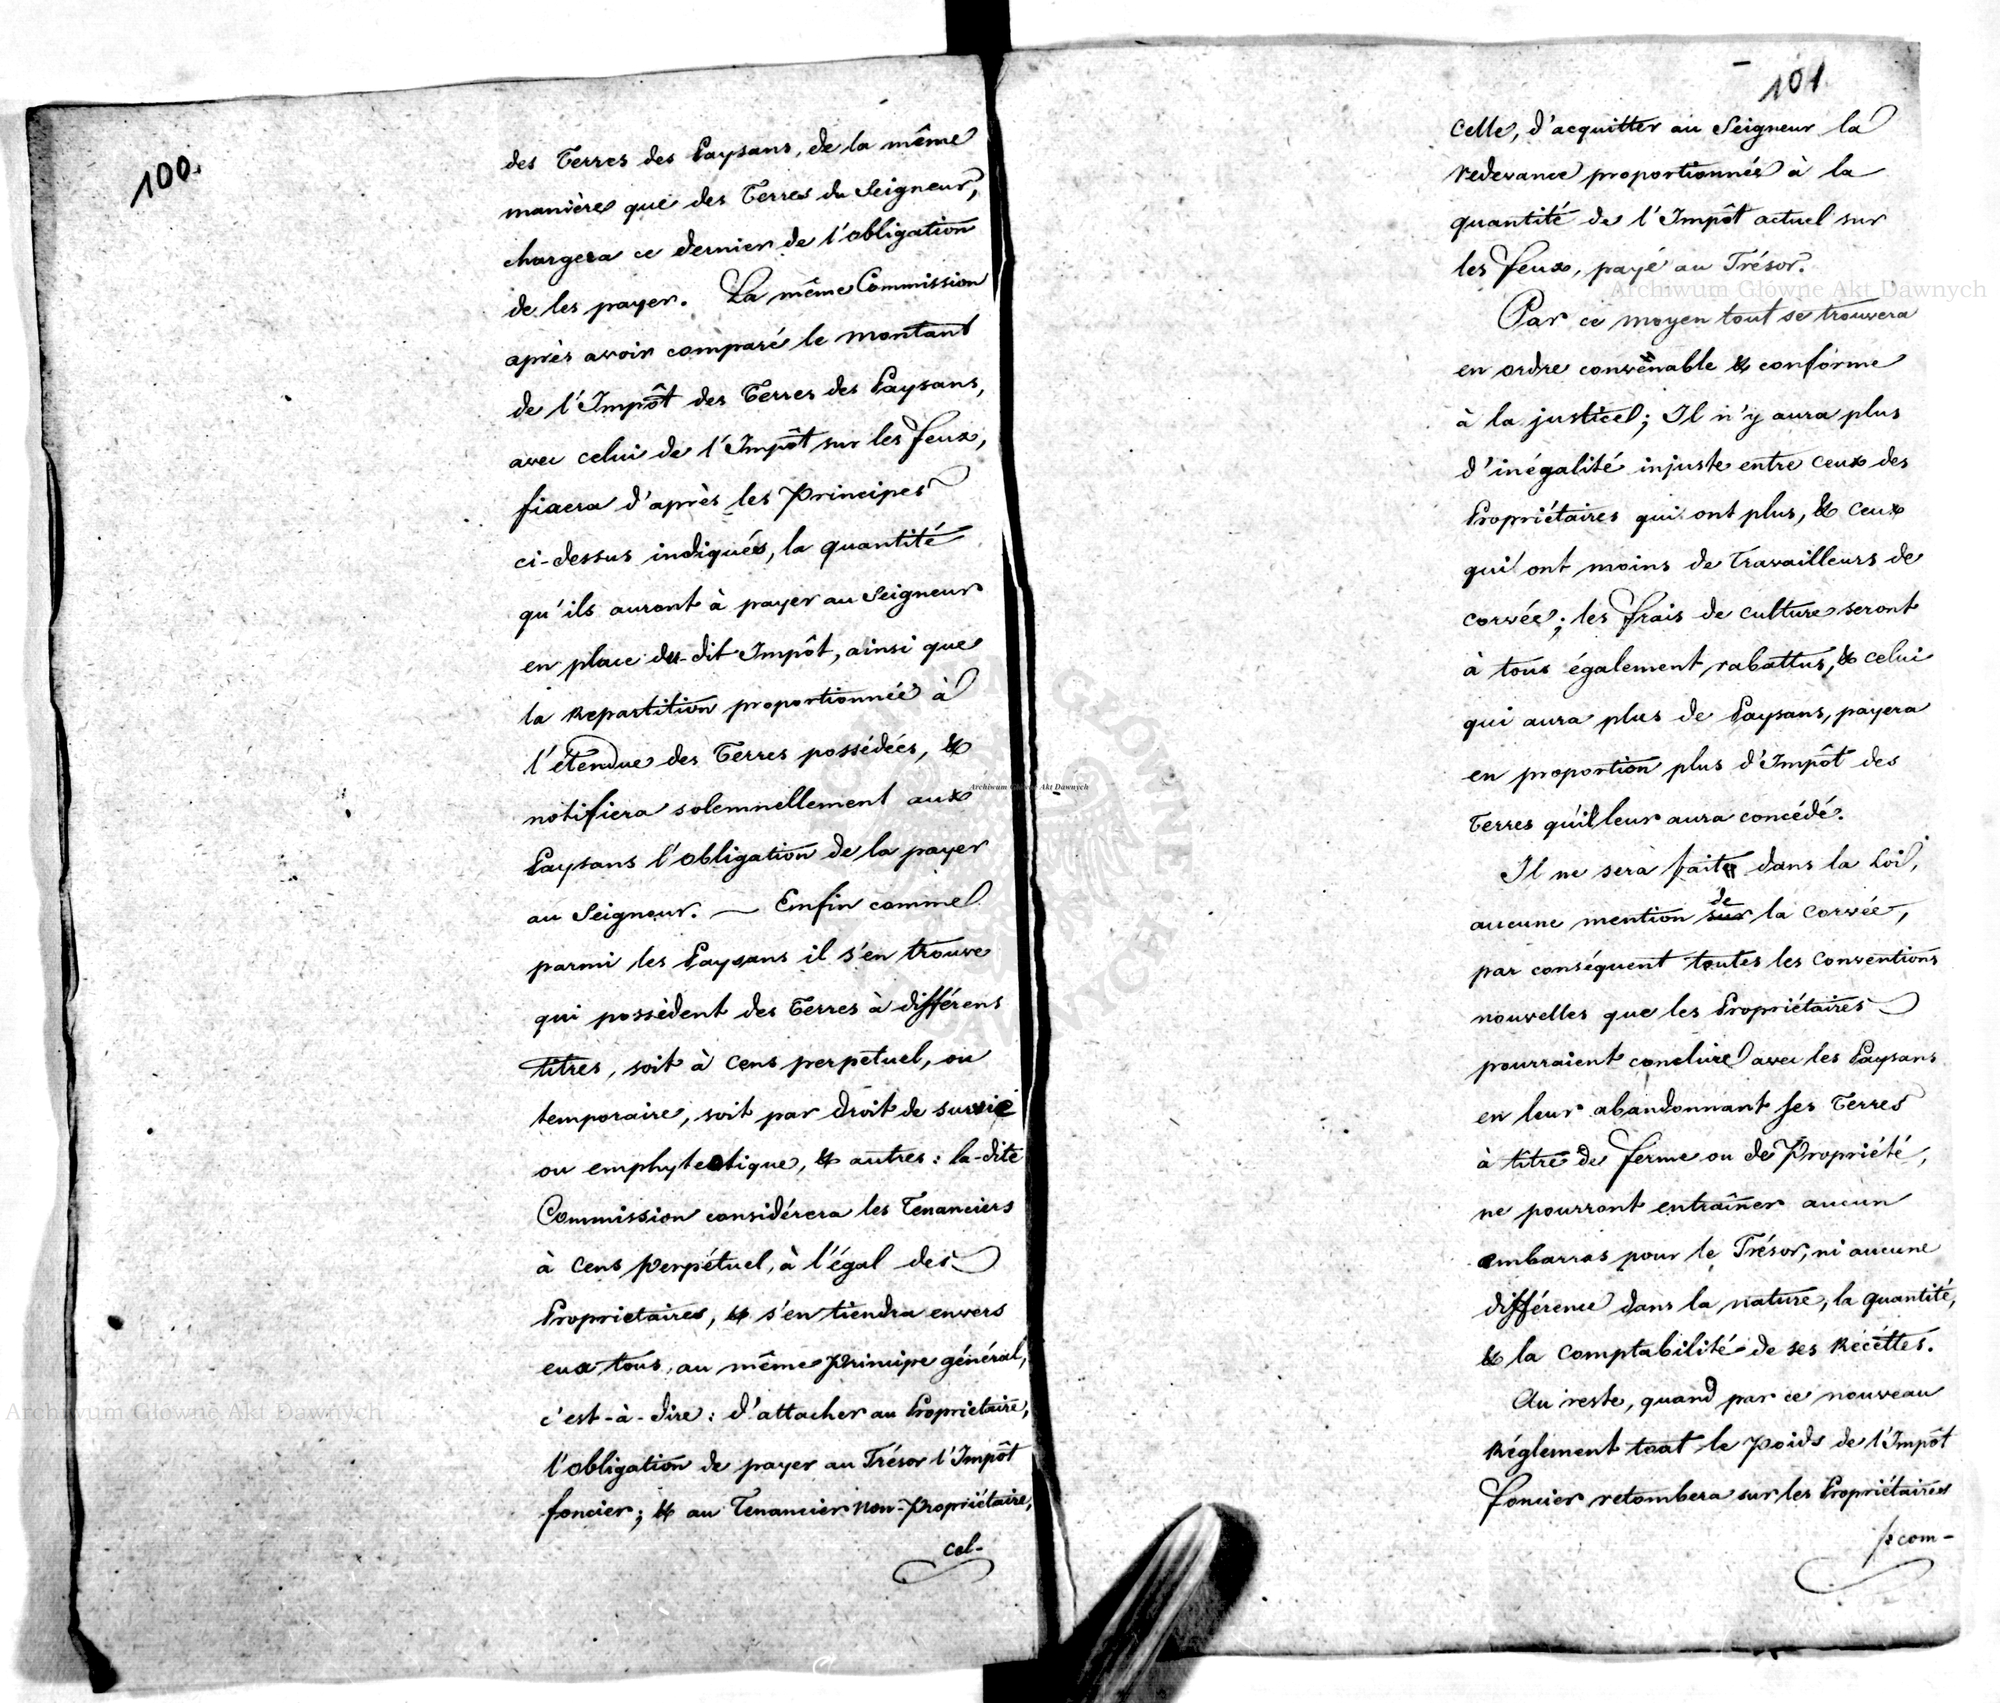 100.
des Terres des Paysans, de la même
manière que des Terres du Seigneur,
chargera ce dernier de l'obligation
de les payer. La même Commission
après avoir comparé le montant
de l'Impôt des Terres des Paysans,
avec celui de l'Impôt sur les feux,
fixera d'après les Principes
ci-dessus indiqués, la quantité
qu'ils auront à payer au Seigneur
en place du-dit Impôt, ainsi que
la Repartition proportionnée à
l'étendue des Terres possédées, &
notifiera solemnellement aux
Paysans l'obligation de la payer
au Seigneur. — Enfin comme
parmi les Paysans il s'en trouve
qui possèdent des Terres à différens
titres, soit à Cens perpétuel, ou
temporaire, soit par droit de survie
ou emphyteotique, & autres: la-dite
Commission considérera les Tenanciers
à Cens perpétuel, à l'égal des
Propriétaires, & s'en tiendra envers
eux tous, au même Principe général,
c'est-à-dire: d'attacher au Propriétaire,
l'obligation de payer au Trésor l'Impôt
foncier; & au Tenancier non-Propriétaire,
cel-
101
celle, d'acquitter au Seigneur la
redevance proportionnée à la
quantité de l'Impôt actuel sur
les feux, payé au Trésor.
Par ce moyen tout se trouvera
en ordre convenable & conforme
à la justice; Il n'y aura plus
d'inégalité injuste entre ceux des
Propriétaires qui ont plus, & ceux
qui ont moins de Travailleurs de
corvée; les frais de culture seront
à tous également rabattus, & celui
qui aura plus de Paysans, payera
en proportion plus d'Impôt des
Terres qu'il leur aura concédé.
Il ne sera fait dans la Loi,
aucune mention sur de la corvée,
par conséquent toutes les Conventions
nouvelles que les Propriétaires
pourraient conclure avec les Paysans
en leur abandonnant ses Terres
à titre de ferme ou de Propriété,
ne pourront entraîner aucun
embarras pour le Trésor, ni aucune
différence dans la nature, la quantité,
& la comptabilité de ses Récéttes.
Au reste, quand par ce nouveau
Réglement tout le poids de l'Impôt
foncier retombera sur les Propriétaires
com-
Archiwum Główne Akt Dawnych
Archiwum Główne Akt Dawnych
Archiwum Główne Akt Dawnych